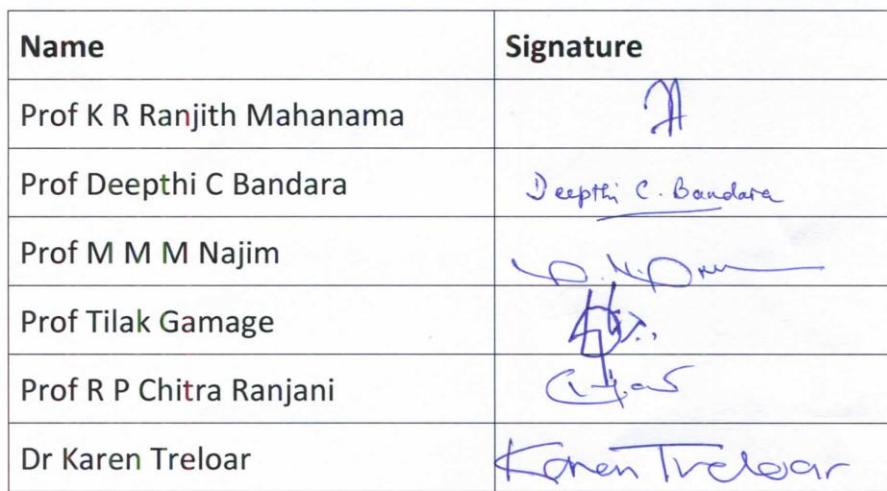 Name Signature
Prof K R Ranjith Mahanama
Prof Deepthi C Bandara Deepthi C. Bandara
Prof M M M Najim
Prof Tilak Gamage
Prof R P Chitra Ranjani
Dr Karen Treloar Karen Treloar